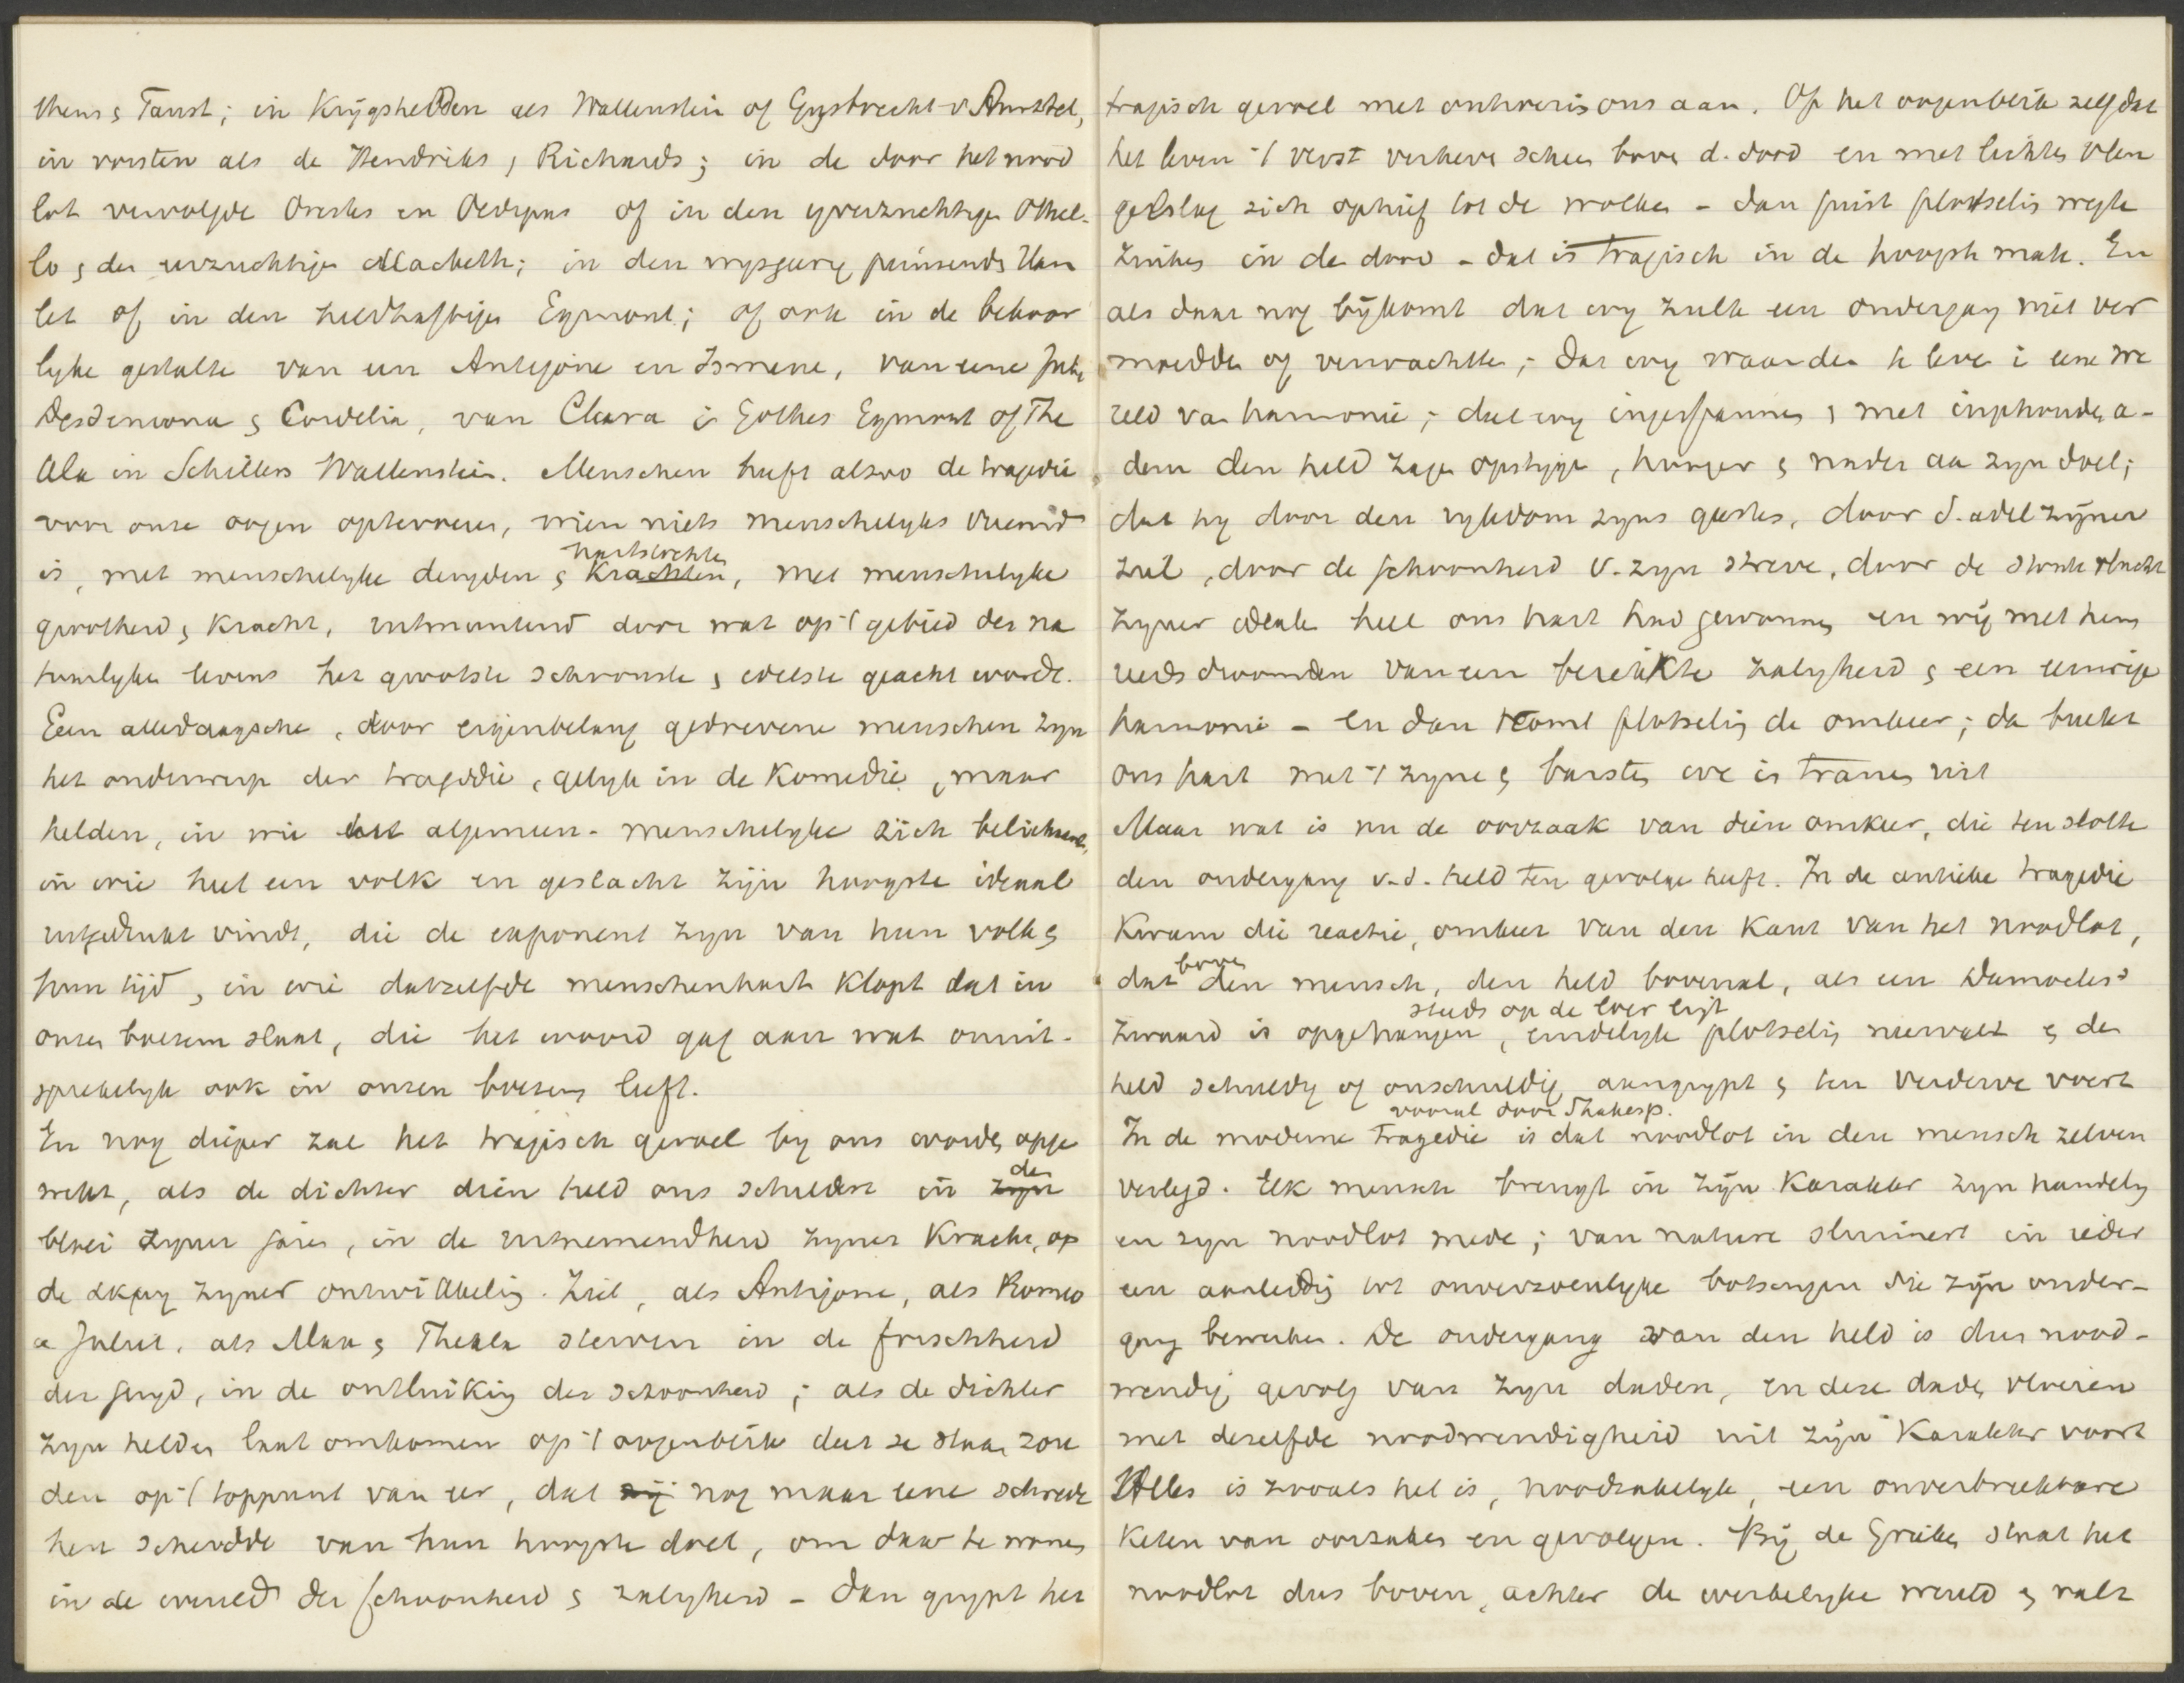 theus & Faust; in Krijgshelden als Wallenstein of Gysbrecht v Amstel,
in vorsten als de Hendriks, Richards; in de door het nood
lot vervolgde Orestes en Oedipus of in den yverzuchtigen Othel-
lo, den eerzuchtige Macbeth; in den wysgeerig peinzends Ham
let of in den heldhaftigen Egmont; of ook in de bekoor
lyke gestalte van een Antigone en Ismene, van eene Julia
Desdemona & Cordelia, van Clara in Göthes Egmont of The
kla in Schillers Wallenstein. Menschen heeft alzoo de tragedie
voor onze oogen optevoeren, wien niets menschelyks vreemd
is, met menschelyke deugden & hartstochten
Krachten, met menschelyke
grootheid & Kracht, uitmuntend door wat op 't gebied des na
tuurlyken levens het grootste schoonste & edelste geacht wordt.
Geen alledaagsche, door eigenbelang gedrevene menschen zyn
het onderwerp der tragedie, gelyk in de Komedie, maar
helden, in wie het algemeen-menschelyke zich belichaamt,
in wie heel een volk en geslacht zijn hoogste ideaal
uitgedrukt vindt, die de exponent zyn van hun volk &
hun tijd, in wie datzelfde menschenhart Klopt dat in
onzen boezem slaat, die het woord gaf aan wat onuit-
sprekelyk ook in onzen boezem leeft.
En nog dieper zal het tragisch gevoel by ons worden opge
wekt, als de dichter dien held ons schildert in zyn den
bloei zyner jaren, in de uitnemendheid zyner Kracht, op
de acme zyner ontwikkeling. Ziet, als Antigone, als Romeo
en Juliet, als Max & Thekla sterven in de frischheid
der jeugd, in de ontluiking der schoonheid; als de dichter
zyn helden laat omkomen op 't oogenblik dat ze staan zou
den op 't toppunt van eer, dat zij nog maar eene schrede
hen scheidde van hun hoogste doel, om daar te wonen
in de wereld der schoonheid & zaligheid - dan grypt het
tragisch gevoel met ontroering ons aan. Op het oogenblik zelf dat
het leven 't verst verheven scheen boven d. dood en met lichten vleu
gelslag zich ophief tot de wolken - dan juist plotseling wegte
zinken in de dood - dat is tragisch in de hoogste mate. En
als daar nog bijkomt dat wy zulk een ondergang niet ver
moedden of verwachtten; dat wy waanden te leven in eene we
reld van harmonie; dat wy ingespannen & met ingehouden a-
dem den held zagen opstygen, hooger & nader aan zyn doel;
dat hy door den rykdom zyns geestes, door d. adel zijner
ziel, door de schoonheid v. zyn streven, door de stoute vlucht
zyner idealen heel ons hart had gewonnen en wij met hem
reeds droomden van een bereikte zaligheid & een eeuwige
harmonie - en dan komt plotseling de omkeer; dan breekt
ons hart met 't zyne & barsten we in tranen uit
Maar wat is nu de oorzaak van dien omkeer, die ten slotte
den ondergang v.d. held ten gevolge heeft. In de antieke tragedie
Kwam die reactie, omkeer van den Kant van het noodlot,
dat boven den mensch, den held bovenal, als een Damocles'
zwaard is opgehangen, steeds op de loer ligt eindelyk plotseling neervalt & den
held schuldig of onschuldig aangrypt & ten verderve voert
In de moderne tragedie vooral door Shakesp. is dat noodlot in den mensch zelven
verlegd. Elk mensch brengt in zijn Karakter zyn handeling
en zyn noodlot mede; van nature sluimert in ieder
een aanleiding tot onverzoenlyke botsingen die zijn onder-
gang bewerken. De ondergang van den held is dus nood-
wendig gevolg van zyn daden, en deze daden vloeien
met dezelfde noodwendigheid uit zijn Karakter voort
Alles is zooals het is, noodzakelyk, een onverbreekbare
Keten van oorzaken en gevolgen. Bij de Grieken staat het
noodlot dus boven, achter de werkelyke wereld & valt